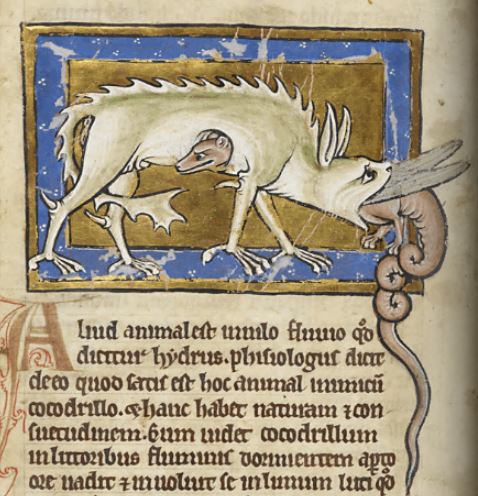 Aliud animal est in nilo fluuio qͦ
dicitur hydrus. phisiologus dicit
de eo quod satis est hoc animal inimicū
cocodrillo. ⁊ hanc habet naturam ⁊ con
suetudinem. Cum uidet cocodrillum
in littoribus fluminis dormientem apto
ore uadit ⁊ inuoluit se in lunum luti qͦ